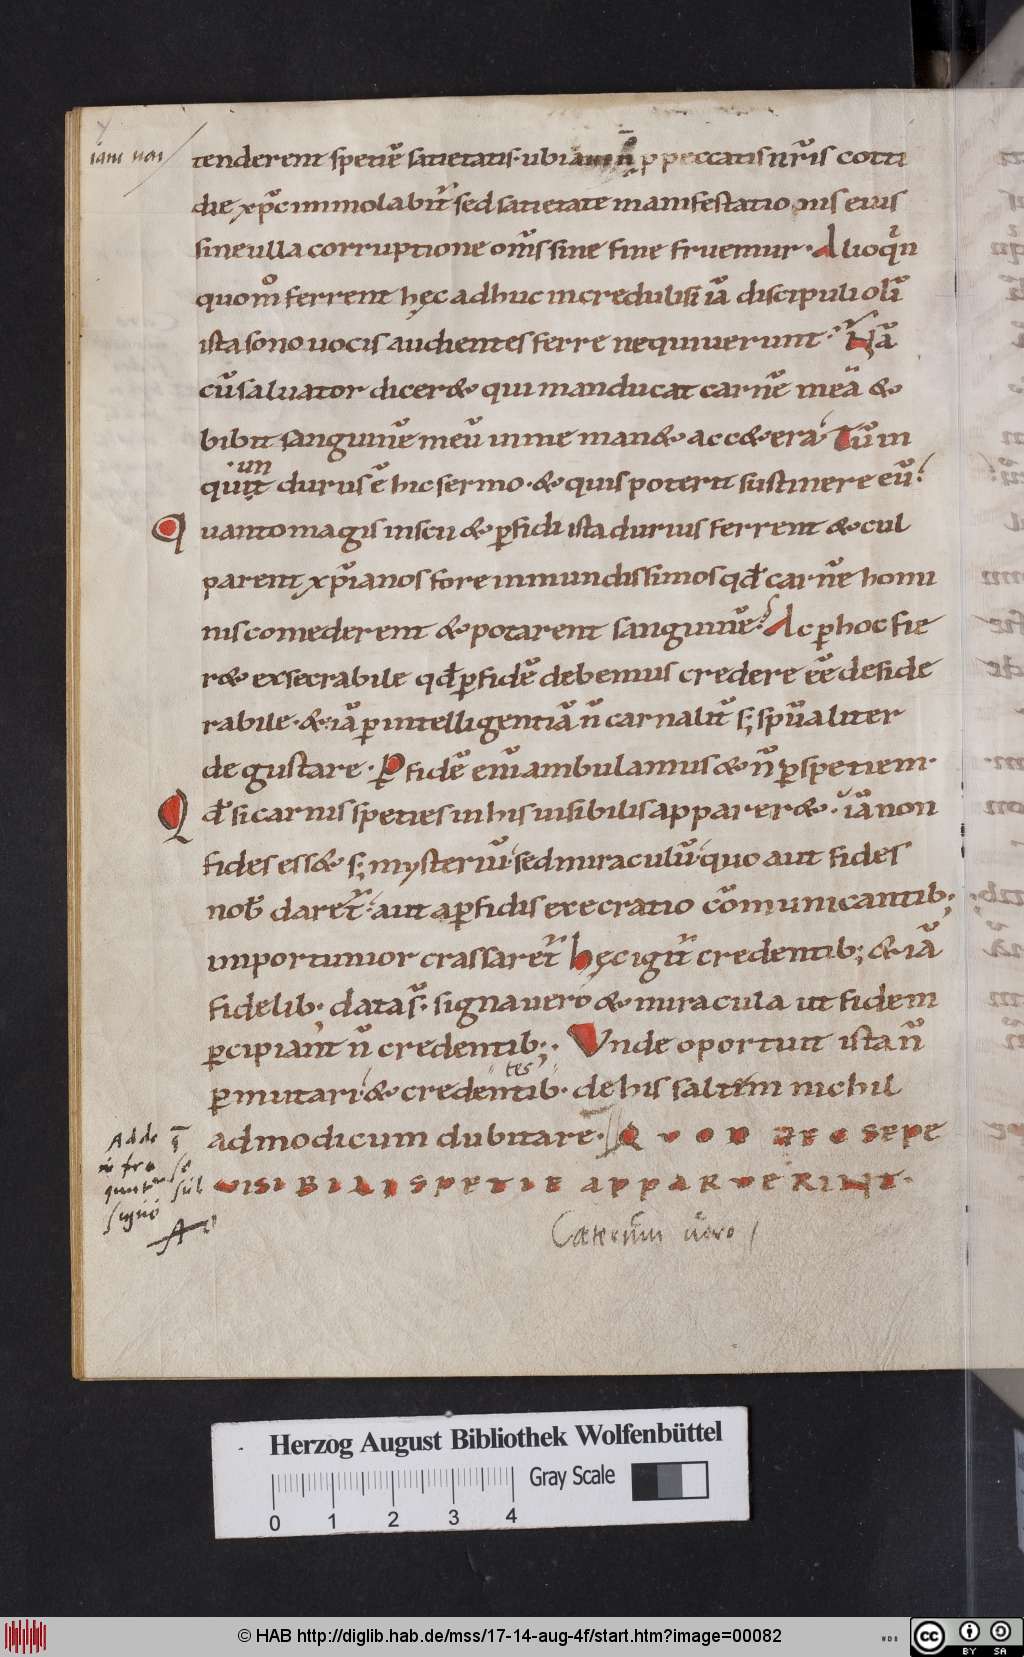 iam non
tenderent spetiē satietatis· ubi iam n̄ p peccatis nr̄is cotti
die xp̄c immolabit̄ sed satietate manifestationis eius
sine ulla corruptione om̄s sine fine fruemur· Alioqin
quom̊ ferrent hęc adhuc increduli si iā discipuli olī
ista sono uocis audientes ferre nequiuerunt· Nā
cū saluator diceret qui manducat carnē meā &
bibit sanguinē meū in me man& acc&era· Tū in
quiunt durus ē hic sermo· & quis poterit sustinere eū?
Quanto magis inscii & ꝑfidi ista durius ferrent & cul
parent xp̄ianos fore inmundissimos qd̄ carnē homi
nis comederent & potarent sanguinē· Ac ꝑ hoc fie
r& exsecrabile qd̄ ꝑ fidē debemus credere eē deside
rabile· & iā ꝑ intelligentiā n̄ carnalit̄ s; sp̄ualiter
degustare· Ꝑ fidē enī ambulamus & n̄ ꝑ spetiem·
Qd̄ si carnis speties in his uisibilis apparer&· iā non
fides ess& s; mysteriū· sed miraculū· quo aut fides
nob̄ daret̄· aut a ꝑfidis execratio cōmunicantib;
inportunior crassaret̄ hęc igit̄ credentib; & iā
fidelib; data s̄· signa uero & miracula ut fidem
ꝑcipiant n̄ credentib;· Vnde oportuit ista n̄
ꝑmutari· & credentib· de his saltem nichil
tes
admodicum dubitare· QUOD HEC SEPE
VISIBILI SPETIE APPARUERINT·
Adde q̄
in fra se
quunt sub
signo
A
Cæterum vero
Herzog August Bibliothek Wolfenbüttel
Gray Scale
0 1 2 3 4
© HAB http://diglib.hab.de/mss/17-14-aug-4f/start.htm?image=00082
WDB
cc BY SA